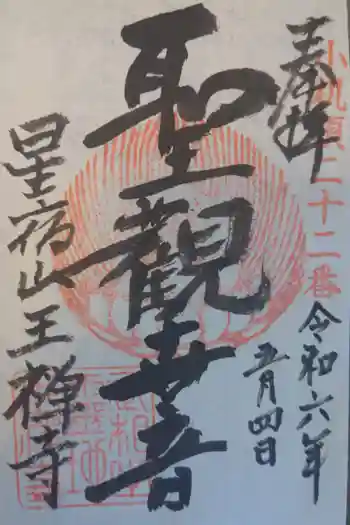 奉拝
小机領三十二番
令和六年
五月四日
聖観世音
星宿山王禅寺